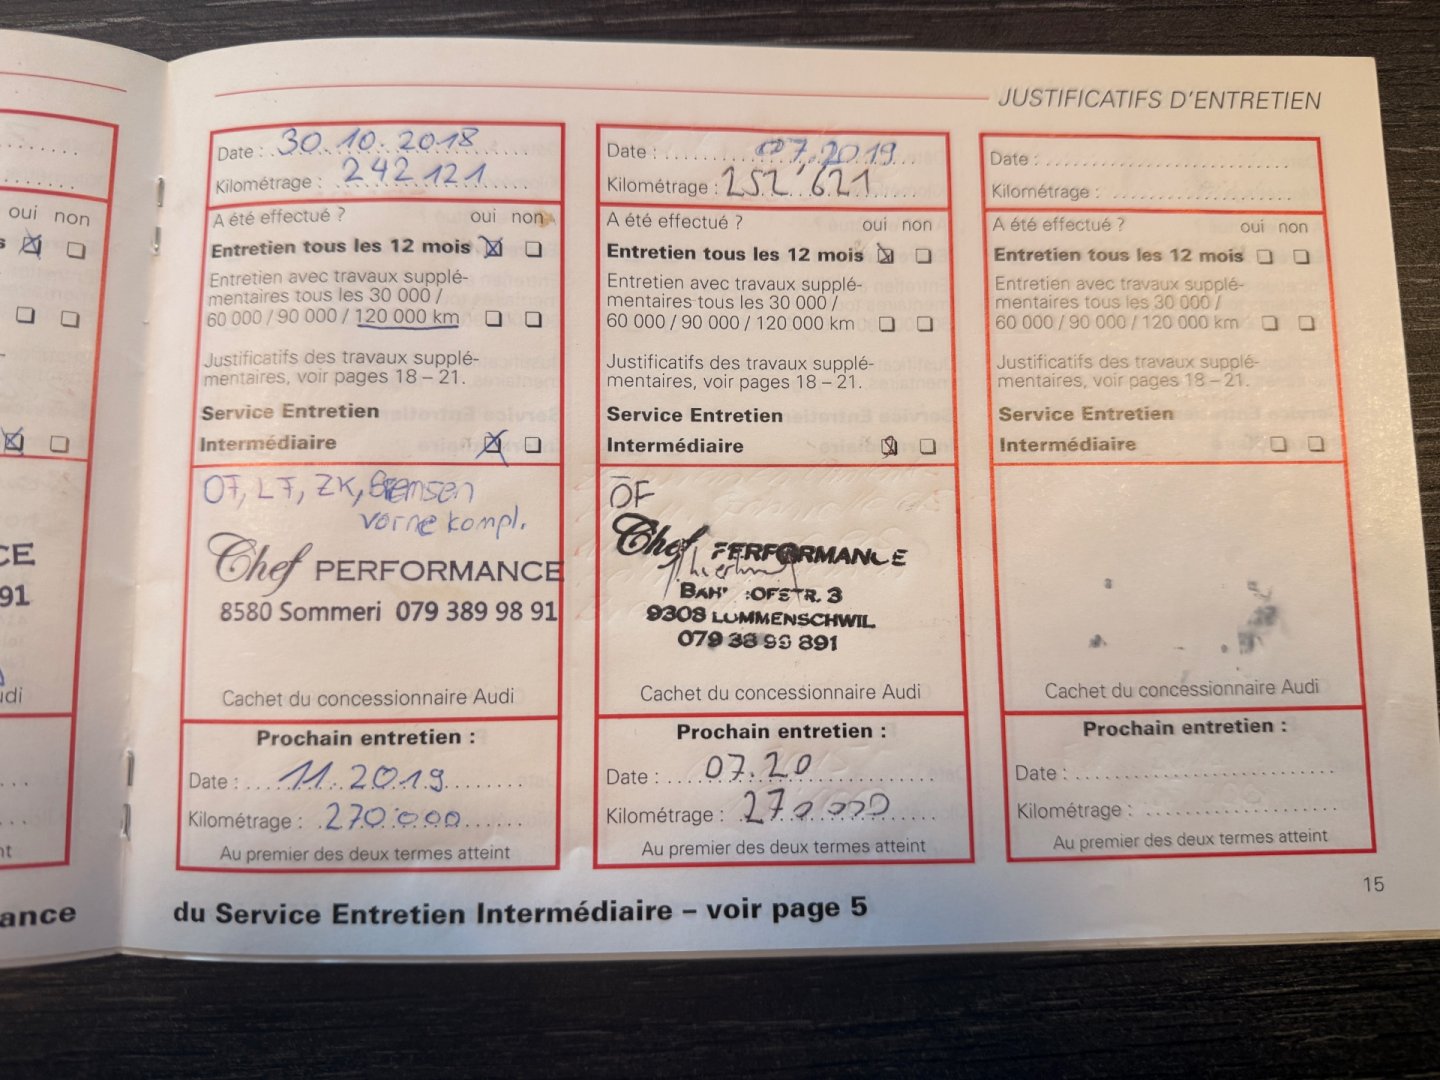 JUSTIFICATIFS D'ENTRETIEN
oui non
CE
91
udi
nt
ance
Date : 30.10.2018
Kilométrage : 242 121
A été effectué ? oui non
Entretien tous les 12 mois
Entretien avec travaux supplé-
mentaires tous les 30 000 /
60 000 / 90 000 / 120 000 km
Justificatifs des travaux supplé-
mentaires, voir pages 18 – 21.
Service Entretien
Intermédiaire
ÖF, LF, ZK, Bremsen
vorne kompl.
Chef PERFORMANCE
8580 Sommeri 079 389 98 91
Cachet du concessionnaire Audi
Prochain entretien :
Date : 11.2019
Kilométrage : 270'000
Au premier des deux termes atteint
Date : 07.2019
Kilométrage : 252'621
A été effectué ? oui non
Entretien tous les 12 mois
Entretien avec travaux supplé-
mentaires tous les 30 000 /
60 000 / 90 000 / 120 000 km
Justificatifs des travaux supplé-
mentaires, voir pages 18 – 21.
Service Entretien
Intermédiaire
ÖF
Chef PERFORMANCE
BAH OFSTR. 3
9308 LÖMMENSCHWIL
079 38 99 891
Cachet du concessionnaire Audi
Prochain entretien :
Date : 07.20
Kilométrage : 270000
Au premier des deux termes atteint
Date :
Kilométrage :
A été effectué ? oui non
Entretien tous les 12 mois
Entretien avec travaux supplé-
mentaires tous les 30 000 /
60 000 / 90 000 / 120 000 km
Justificatifs des travaux supplé-
mentaires, voir pages 18 – 21.
Service Entretien
Intermédiaire
Cachet du concessionnaire Audi
Prochain entretien :
Date :
Kilométrage :
Au premier des deux termes atteint
du Service Entretien Intermédiaire – voir page 5
15